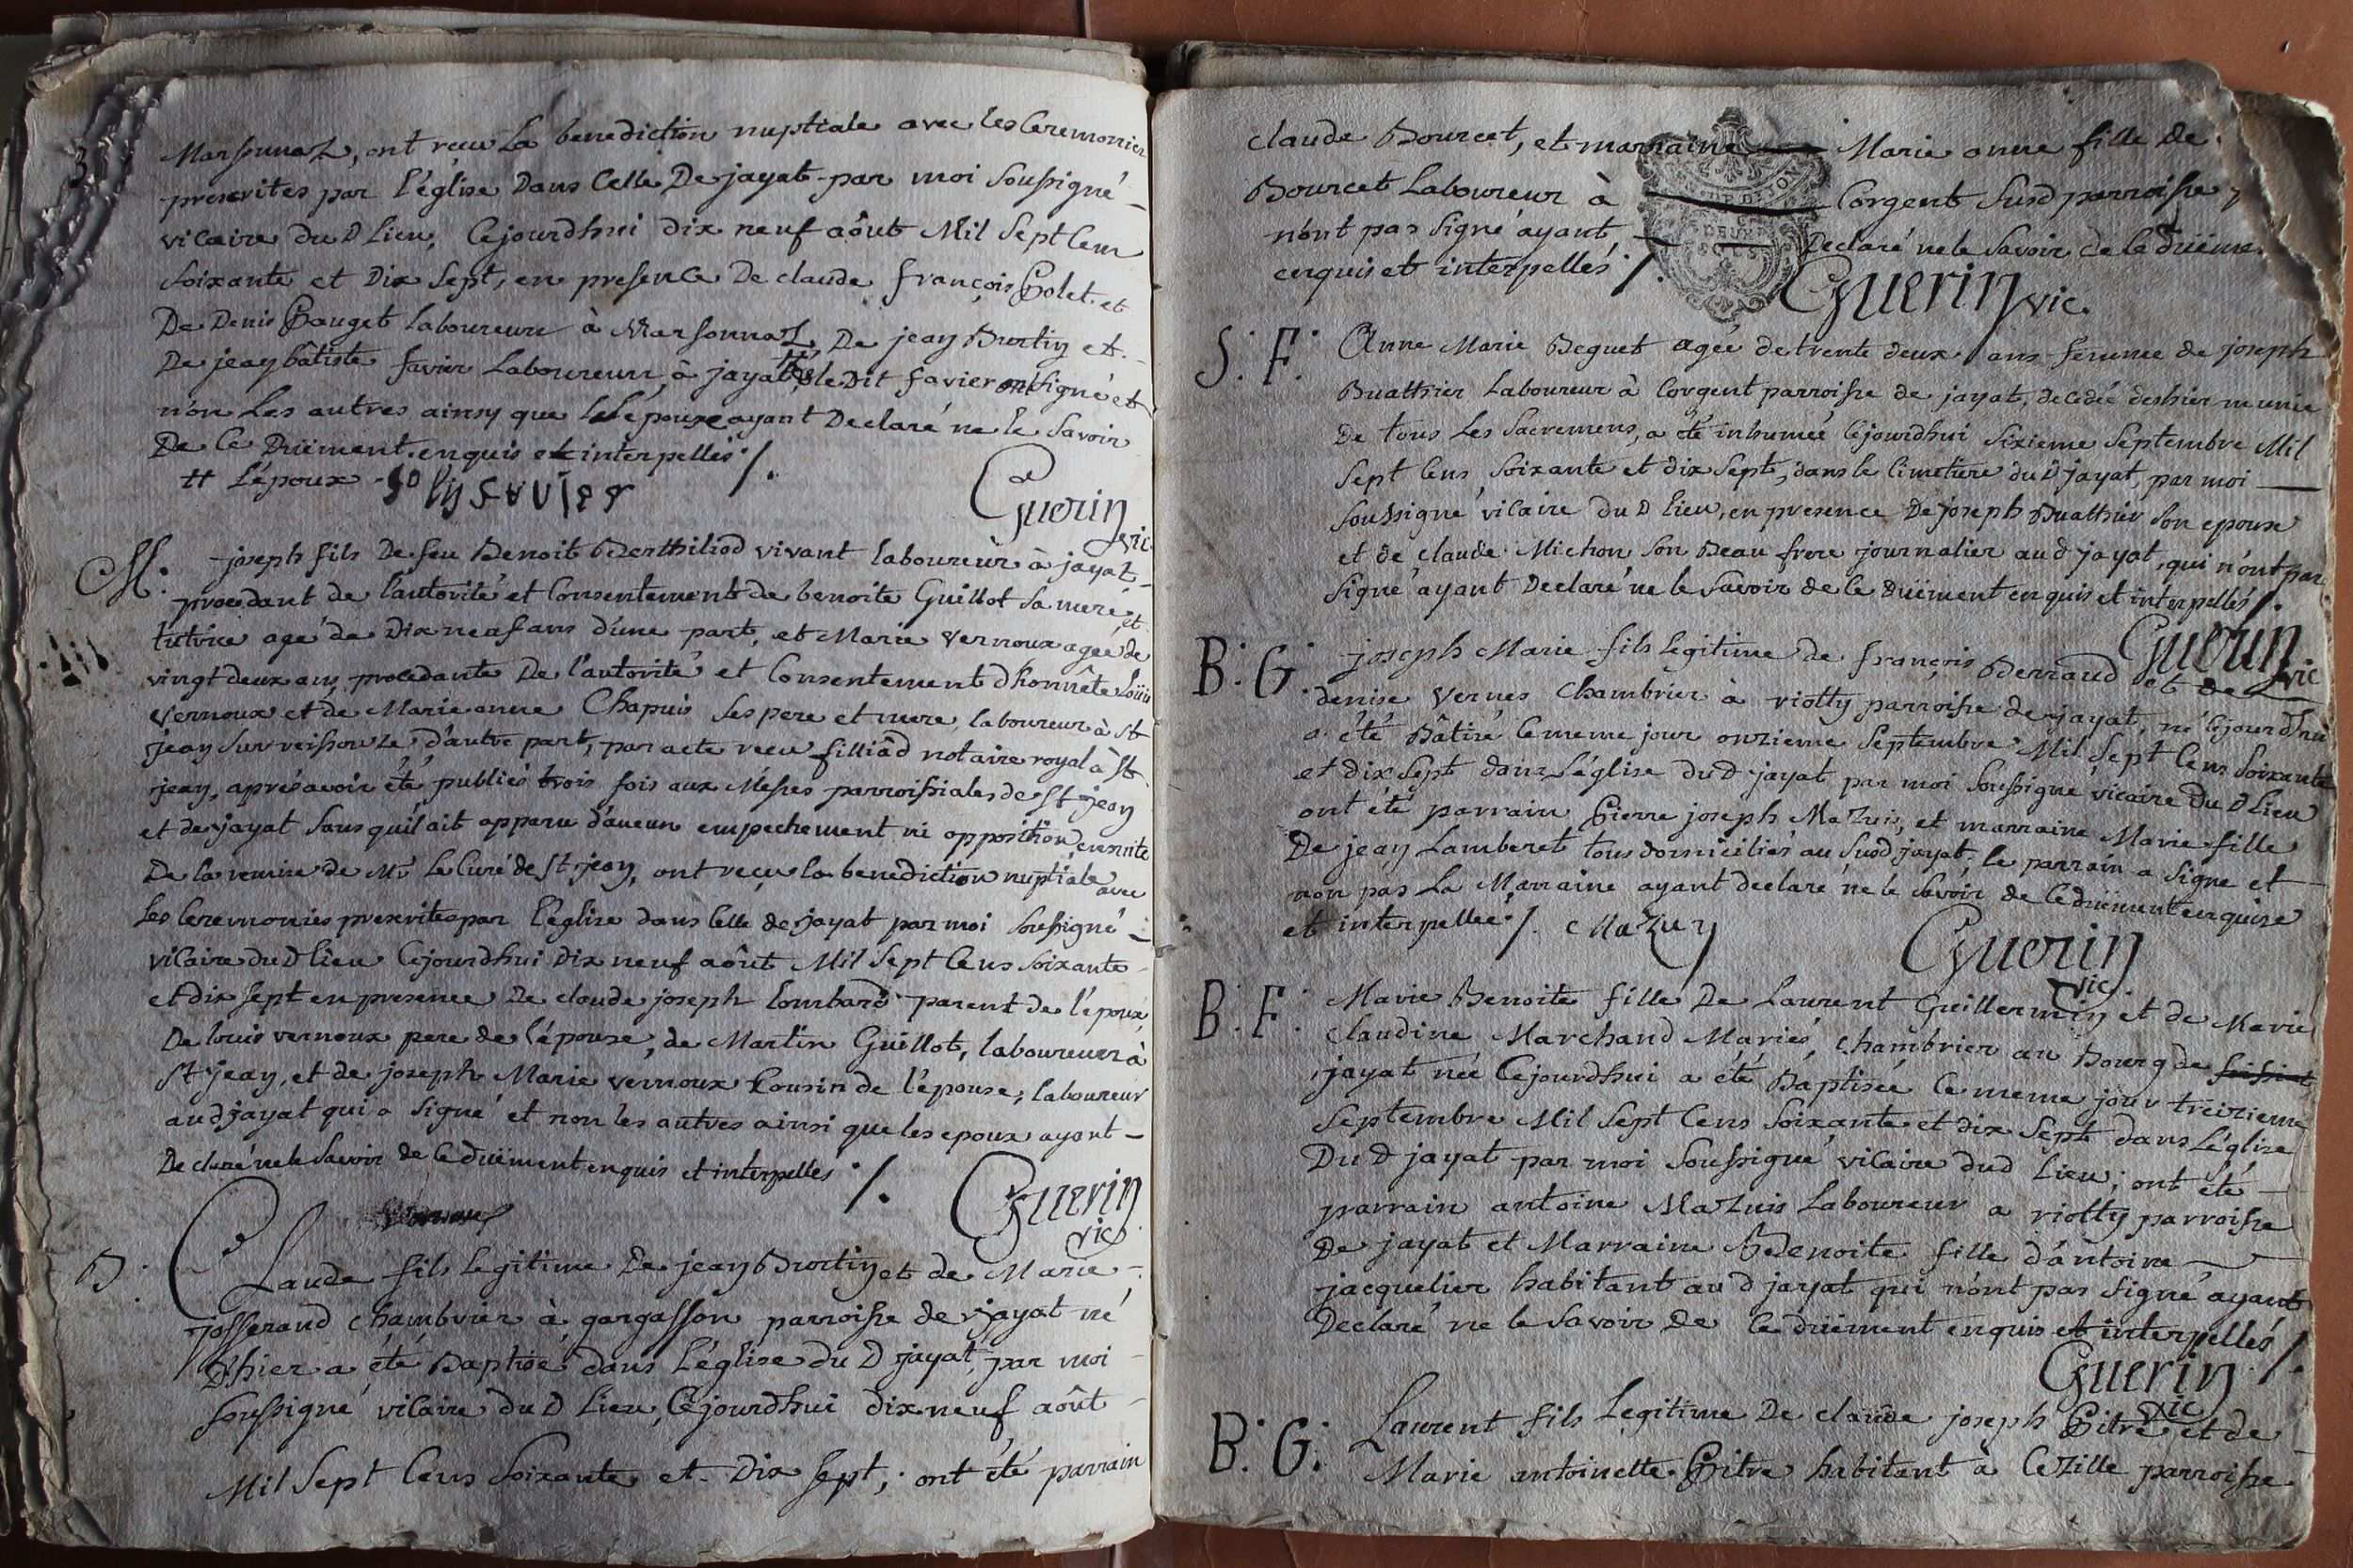 Marsonnaz, ont reçu la benediction nuptiale avec les Ceremonies
prescrites par l'église Dans Celle De jayat par moi Soussigné
vicaire du D Lieu, Cejourdhui dix neuf aôut Mil Sept Cens
Soixante et Dix Sept, en presence De claude françois Polet et
De Denis Pauget laboureurs à Marsonnaz, De jean Burtin et
De jean bâtiste favier Laboureurs à jayat, # le Dit favier ont signé et
non Les autres ainsy que l'épouse ayant Declaré ne le Savoir
De Ce Düement enquis et interpellés ./.
# l'époux
Guerin
vic.
M. joseph fils De feu Benoit Berthiliod vivant laboureur à jayat
procedant de l'autorité et Consentement de benoite Guillot sa mere, et
tutrice agé de Dix neuf ans d'une part, et Marie vernoux agée de
vingt deux ans procedante De l'autorité et Consentement d'honnête Loüis
vernoux et de Marie anne Chapuis Ses pere et mere, laboureur à St
jean Sur reissouze d'autre part, par acte reçu filliâd notaire royal à St
jean, aprés avoir été publiés trois fois aux Messes parroissiales de St jean
et de jayat sans quil ait apparu d'aucun empechement ni opposition, ensuite
De la remise de Mr Le Curé de St jean, ont reçu la benediction nuptiale avec
les Ceremonies prescrites par l'église dans Celle de jayat par moi soussigné
vicaire du D lieu Cejourdhui dix neuf aôut Mil Sept Cens Soixante
et dix sept en presence De claude joseph Lombard parent de l'époux,
De louis vernoux pere de l'épouse, de Martin Guillot, laboureurs à
St jean, et de joseph Marie vernoux Cousin de l'épouse, laboureur
aud jayat qui a signé et non les autres ainsi que les epoux ayant
Declaré ne le Savoir de Ce düement enquis et interpellés ./.
Guerin
vic
B. Claude fils legitime De jean Burtin et de Marie
josserand chambrier à gargasson parroisse de jayat né
D'hier a été Baptisé dans l'église du D jayat, par moi
soussigné vicaire du D Lieu, Cejourdhui dix neuf aôut
Mil Sept Cens Soixante et Dix Sept; ont été parrain
claude Bourcet, et marraine Marie anne fille de
Bourcet Laboureur à Corgent Susd parroisse,
n'ont pas Signé ayant Declaré ne le Savoir de Ce Düëment
enquis et interpellés ./.
Guerin vic.
S. F. Anne Marie Beguet agée de trente deux ans femme de joseph
Buathier Laboureur à Corgent parroisse de jayat, decedée deshier munie
De tous Les Sacremens, a été inhumée Cejourdhui Sixieme Septembre Mil
Sept Cens Soixante et dix Sept, dans le Cimetiere du D jayat, par moi
Soussigné vicaire du D lieu, en presence De joseph Buathier Son epoux
et de claude Michon Son Beau frere journalier aud jayat, qui n'ont pas
Signé ayant Declaré ne le Savoir de Ce Düëment enquis et interpellés ./.
Guerin
vic
B. G. joseph Marie fils legitime de françois Berraud et de
denise Vernes Chambrier à riotty parroisse de jayat, né Cejourdhui
a été Bâtisé le meme jour onzieme Septembre Mil Sept Cens Soixante
et dix Sept dans L'église du D jayat par moi Soussigné vicaire Du D Lieu
ont été parrain Pierre joseph Mazuis, et marraine Marie fille
De jean Lamberet tous domiciliés au Susd jayat, le parrain a Signé et
non pas La Marraine ayant declaré ne le Savoir de Ce düëment enquise
et interpellée ./. Mazuy
Guerin
vic
B. F. Marie Benoite fille De Laurent Guillermin et de Marie
Claudine Marchand Mariés, Chambrier au Bourg de
jayat née Cejourdhui a été Baptisée le meme jour treizieme
Septembre Mil Sept Cens Soixante et dix Sept dans L'église
Du D jayat par moi Soussigné vicaire dud Lieu; ont été
parrain antoine Mazuis Laboureur a riotty parroisse
De jayat et Marraine Benoite fille d'antoine
jacquelier habitant au D jayat qui n'ont pas Signé ayant
Declaré ne le Savoir De Ce düëment enquis et interpellés ./.
Guerin
vic
B. G. Laurent fils Legitime De claude joseph Pitre et de
Marie antoinette Pitre habitant à Cezille parroisse